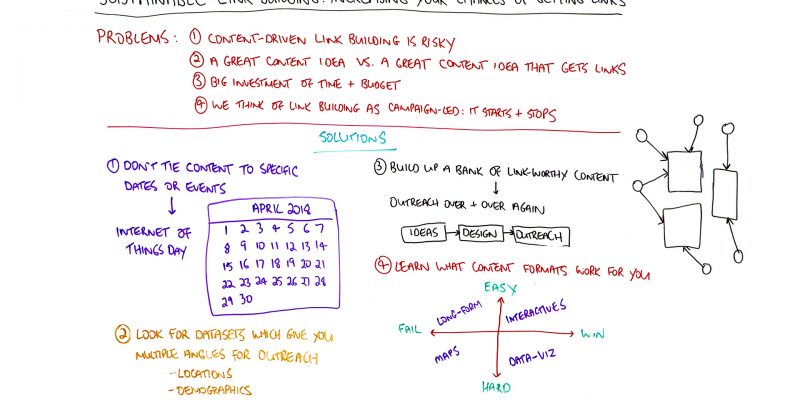 SUSTAINABLE LINK BUILDING: INCREASING YOUR CHANCES OF GETTING LINKS
PROBLEMS: ① CONTENT-DRIVEN LINK BUILDING IS RISKY
② A GREAT CONTENT IDEA VS. A GREAT CONTENT IDEA THAT GETS LINKS
③ BIG INVESTMENT OF TIME + BUDGET
④ WE THINK OF LINK BUILDING AS CAMPAIGN-LED: IT STARTS + STOPS
SOLUTIONS
① DON'T TIE CONTENT TO SPECIFIC
DATES OR EVENTS
INTERNET OF
THINGS DAY
APRIL 2018
1 2 3 4 5 6 7
8 9 10 11 12 13 14
15 16 17 18 19 20 21
22 23 24 25 26 27 28
29 30
② LOOK FOR DATASETS WHICH GIVE YOU
MULTIPLE ANGLES FOR OUTREACH
- LOCATIONS
- DEMOGRAPHICS
③ BUILD UP A BANK OF LINK-WORTHY CONTENT
OUTREACH OVER + OVER AGAIN
IDEAS DESIGN OUTREACH
④ LEARN WHAT CONTENT FORMATS WORK FOR YOU
EASY
LONG-FORM INTERACTIVES
FAIL WIN
MAPS DATA-VIZ
HARD